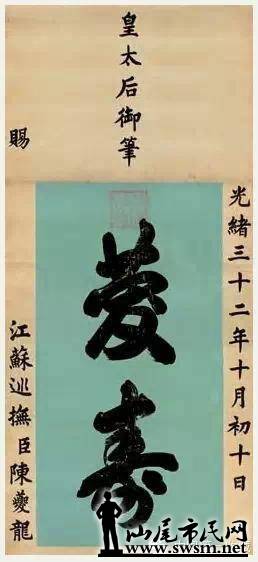 皇太后御筆
光緒三十二年十月初十日
壽
賜
江蘇巡撫臣陳夔龍
汕尾市民网
www.swsm.net